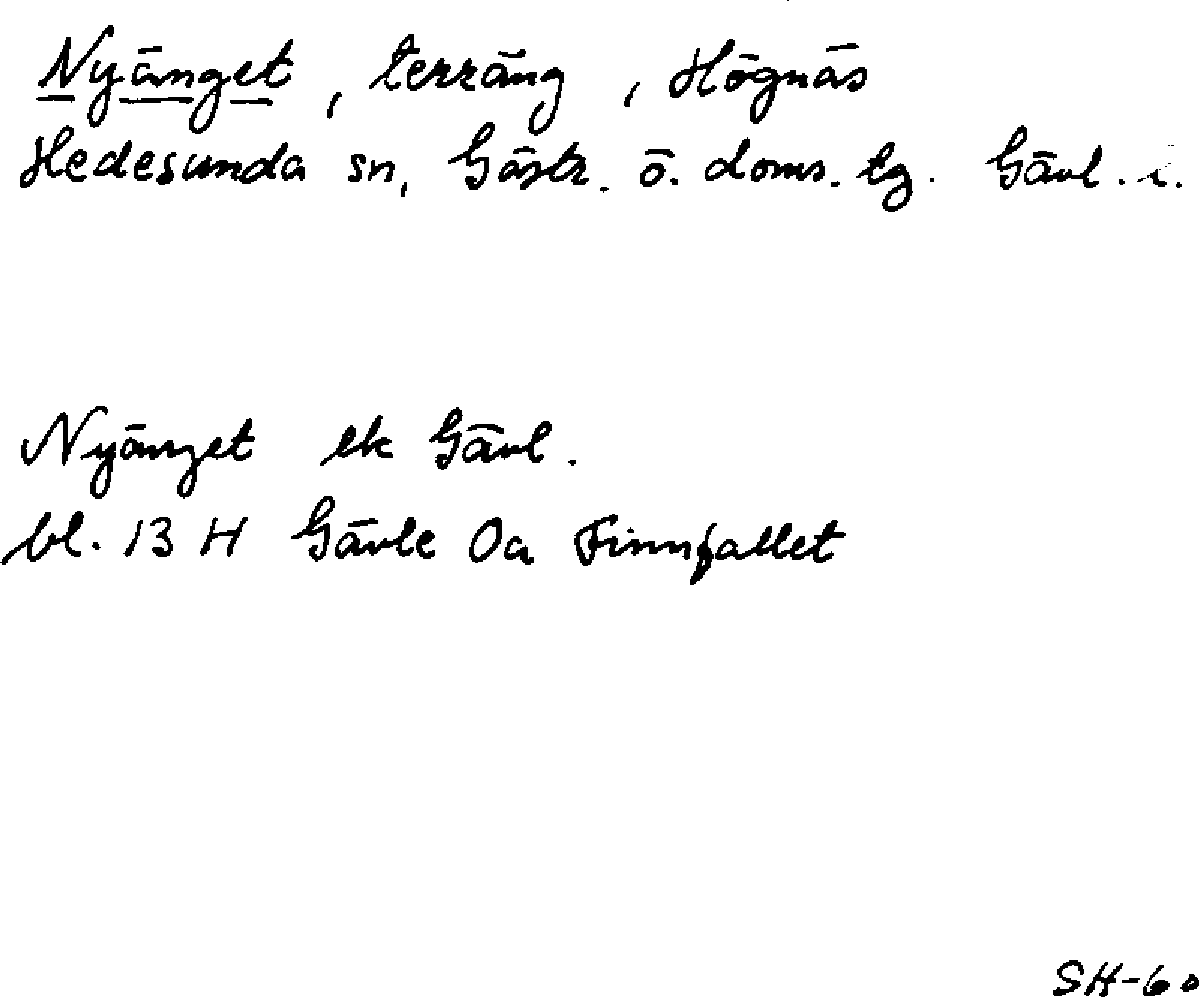 Nyänget, terräng, Högnäs
Hedesunda sn, Gästr. ö. doms. tg. Gävl. i.
Nyänget ek Gävl.
bl. 13 H Gävle 0a Finnfallet
SH-60